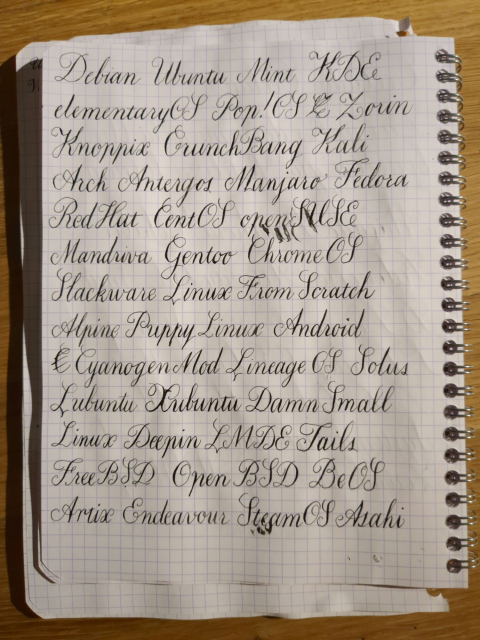 Debian Ubuntu Mint KDE
elementaryOS Pop!OS Zorin
Knoppix CrunchBang Kali
Arch Antergos Manjaro Fedora
RedHat CentOS openSUSE
Mandriva Gentoo ChromeOS
Slackware Linux From Scratch
Alpine Puppy Linux Android
CyanogenMod Lineage OS Solus
Lubuntu Xubuntu Damn Small
Linux Deepin LMDE Tails
FreeBSD Open BSD BeOS
Artix Endeavour SteamOS Asahi